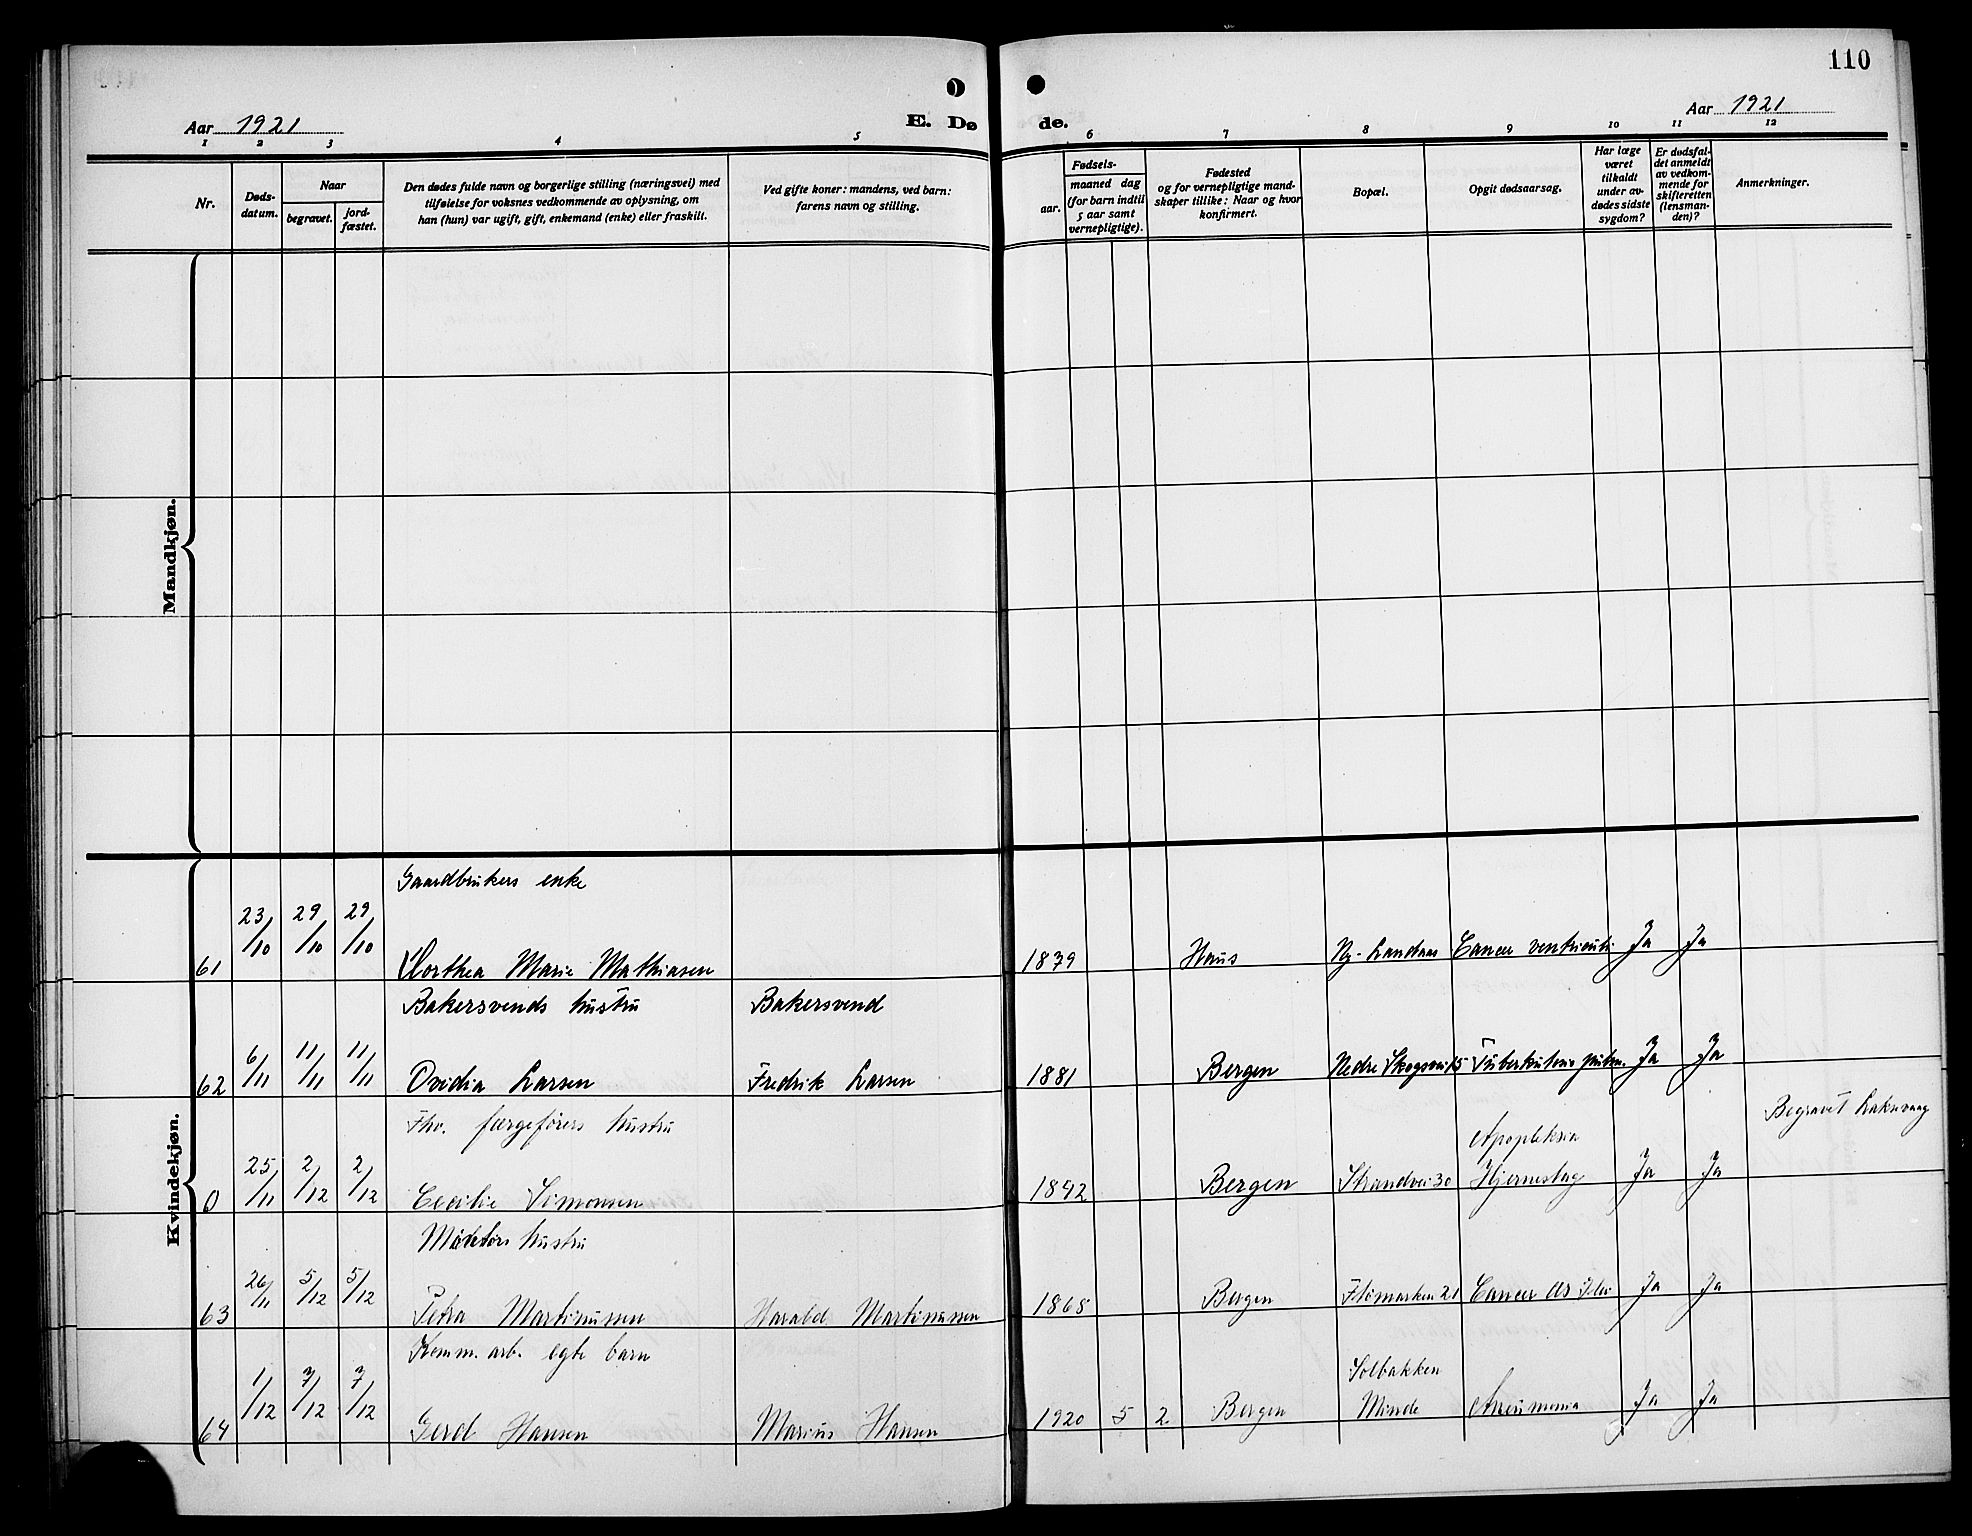 110
Aar 1921
E. Dø
de.
Aar 1921
1 2 3 4 5 6 7 8 9 10 11 12
Nr.
Døds-
datum.
Naar
begravet.
jord-
fæstet.
Den dødes fulde navn og borgerlige stilling (næringsvei) med
tilføielse for voksnes vedkommende av oplysning, om
han (hun) var ugift, gift, enkemand (enke) eller fraskilt.
Ved gifte koner: mandens, ved barn:
farens navn og stilling.
Fødsels-
aar.
maaned dag
(for barn indtil
5 aar samt
vernepligtige).
Fødested
og for vernepligtige mand-
skaper tillike: Naar og hvor
konfirmert.
Bopæl.
Opgit dødsaarsag.
Har læge
været
tilkaldt
under av-
dødes sidste
sygdom?
Er dødsfal-
det anmeldt
av vedkom-
mende for
skifteretten
(lensman-
den)?
Anmerkninger.
Mandkjøn.
Kvindekjøn.
Gaardbrukers enke
61 23/10 29/10 29/10 Dorthea Marie Mathiasen 1839 Haus Ny-Landaas Cancer ventriculi Ja Ja
Bakersvends hustru Bakersvend
62 6/11 11/11 11/11 Ovidia Larsen Fredrik Larsen 1881 Bergen Nedre Skogvei 15 Tuberkulose pulm. Ja Ja
Fhv. færgeførers hustru Apopleksia Begravet Laksevaag
0 25/11 2/12 2/12 Cecilie Simonsen 1842 Bergen Strandvei 30 Hjerneslag Ja Ja
hustru
63 26/11 5/12 5/12 Petra Martinussen Harald Martinussen 1865 Bergen Flømarken 21 Cancer Ja Ja
Komm. arb. egte barn Solbakken
64 1/12 7/12 7/12 Gerd Hansen Marius Hansen 1920 5 2 Bergen Minde Pneumonia Ja Ja